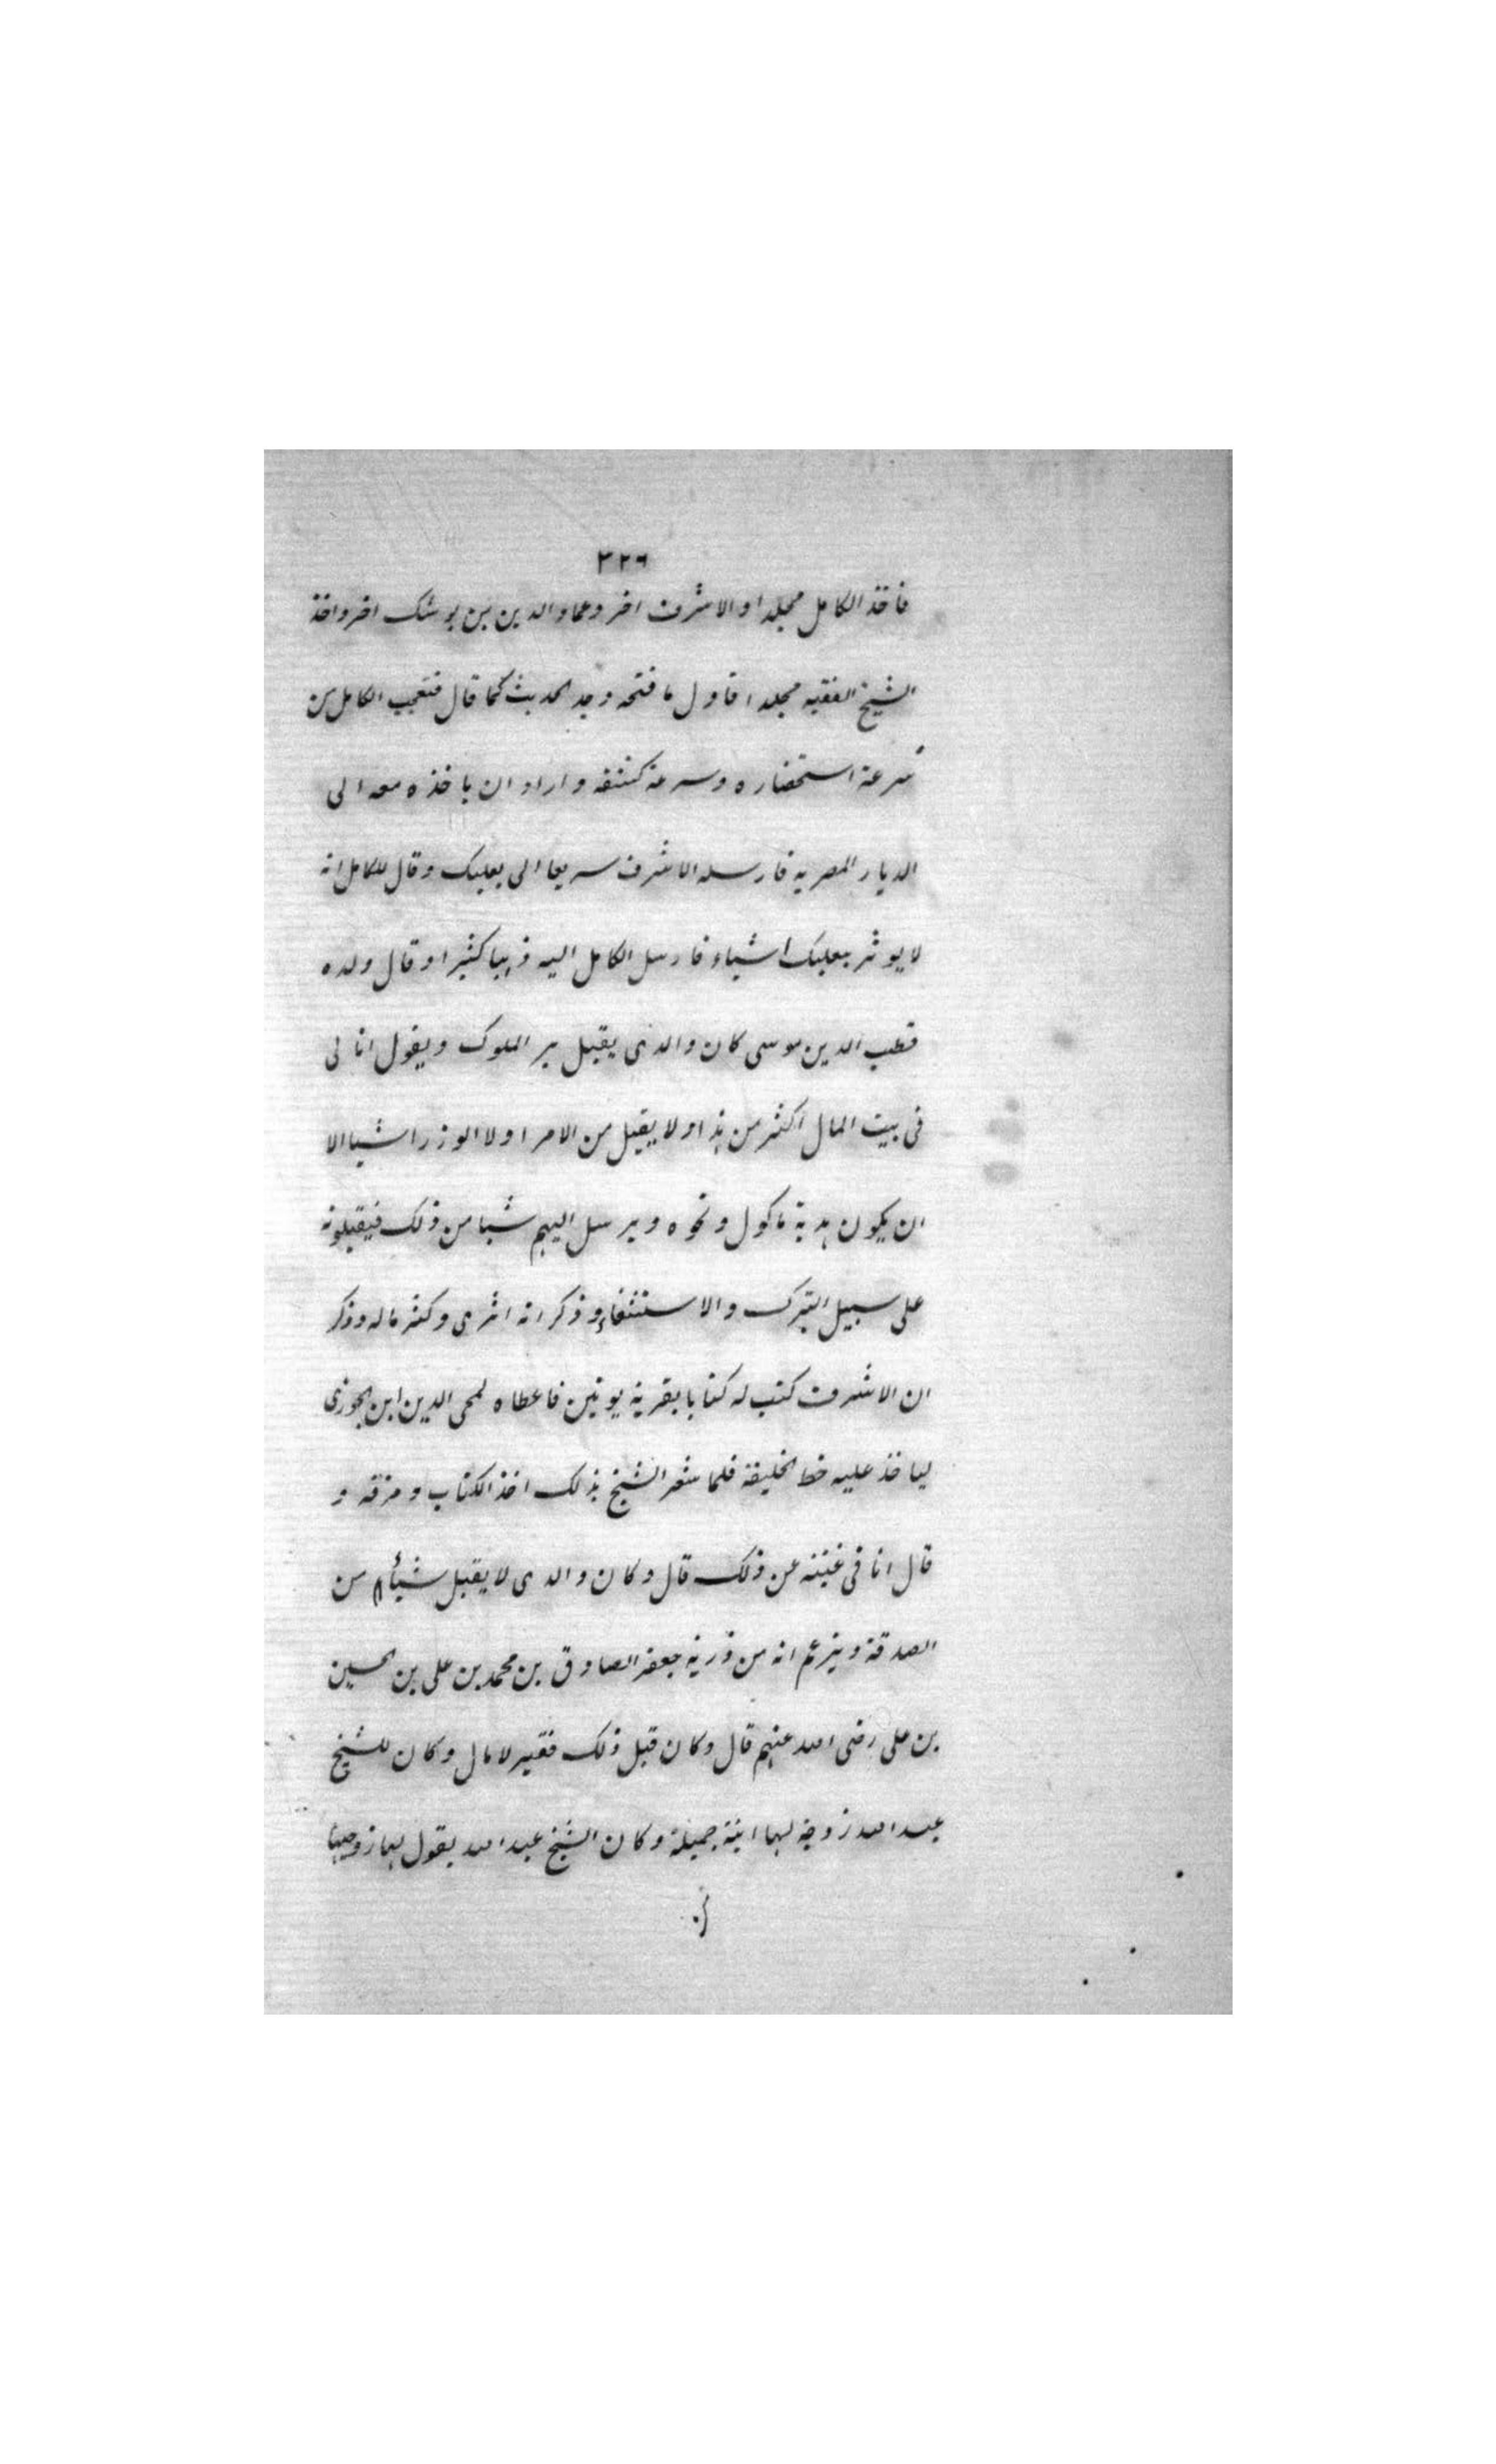 ٣٢٦
فاخذ الكامل مجلدا والاشرف اخر وعماد الدين بن يوشك اخر واخذ
الشيخ الفقيه مجلدا فاول ما فتحه وجد الحديث كما قال فتعجب الكامل من
سرعة استحضاره وسرعة كشفه واراد ان ياخذه معه الى
الديار المصرية فارسله الاشرف سريعا الى بعلبك وقال للكامل انه
لا يوثر ببعلبك اشياء فارسل الكامل اليه ذهبا كثيرا وقال ولده
قطب الدين موسى كان والدى يقبل بر الملوك ويقول انا لى
فى بيت المال اكثر من هذا ولا يقبل من الامرا ولا الوزرا شيا الا
ان يكون هدية ماكول ونحوه ويرسل اليهم شيا من ذلك فيقبلونه
على سبيل التبرك والاستشفاء وذكر انه اثرى وكثر ماله وذكر
ان الاشرف كتب له كتابا بقرية يونين فاعطاه لمحى الدين ابن الجوزى
لياخذ عليه خط الخليفة فلما شعر الشيخ بذلك اخذ الكتاب ومزقه و
قال انا فى غنية عن ذلك قال وكان والدى لا يقبل شيأ من
الصدقة ويزعم انه من ذرية جعفر الصادق بن محمد بن على بن الحسين
بن على رضى الله عنهم قال وكان قبل ذلك فقير لا مال وكان للشيخ
عبد الله زوجة لها ابنة جميلة وكان الشيخ عبد الله يقول لها زوجيها